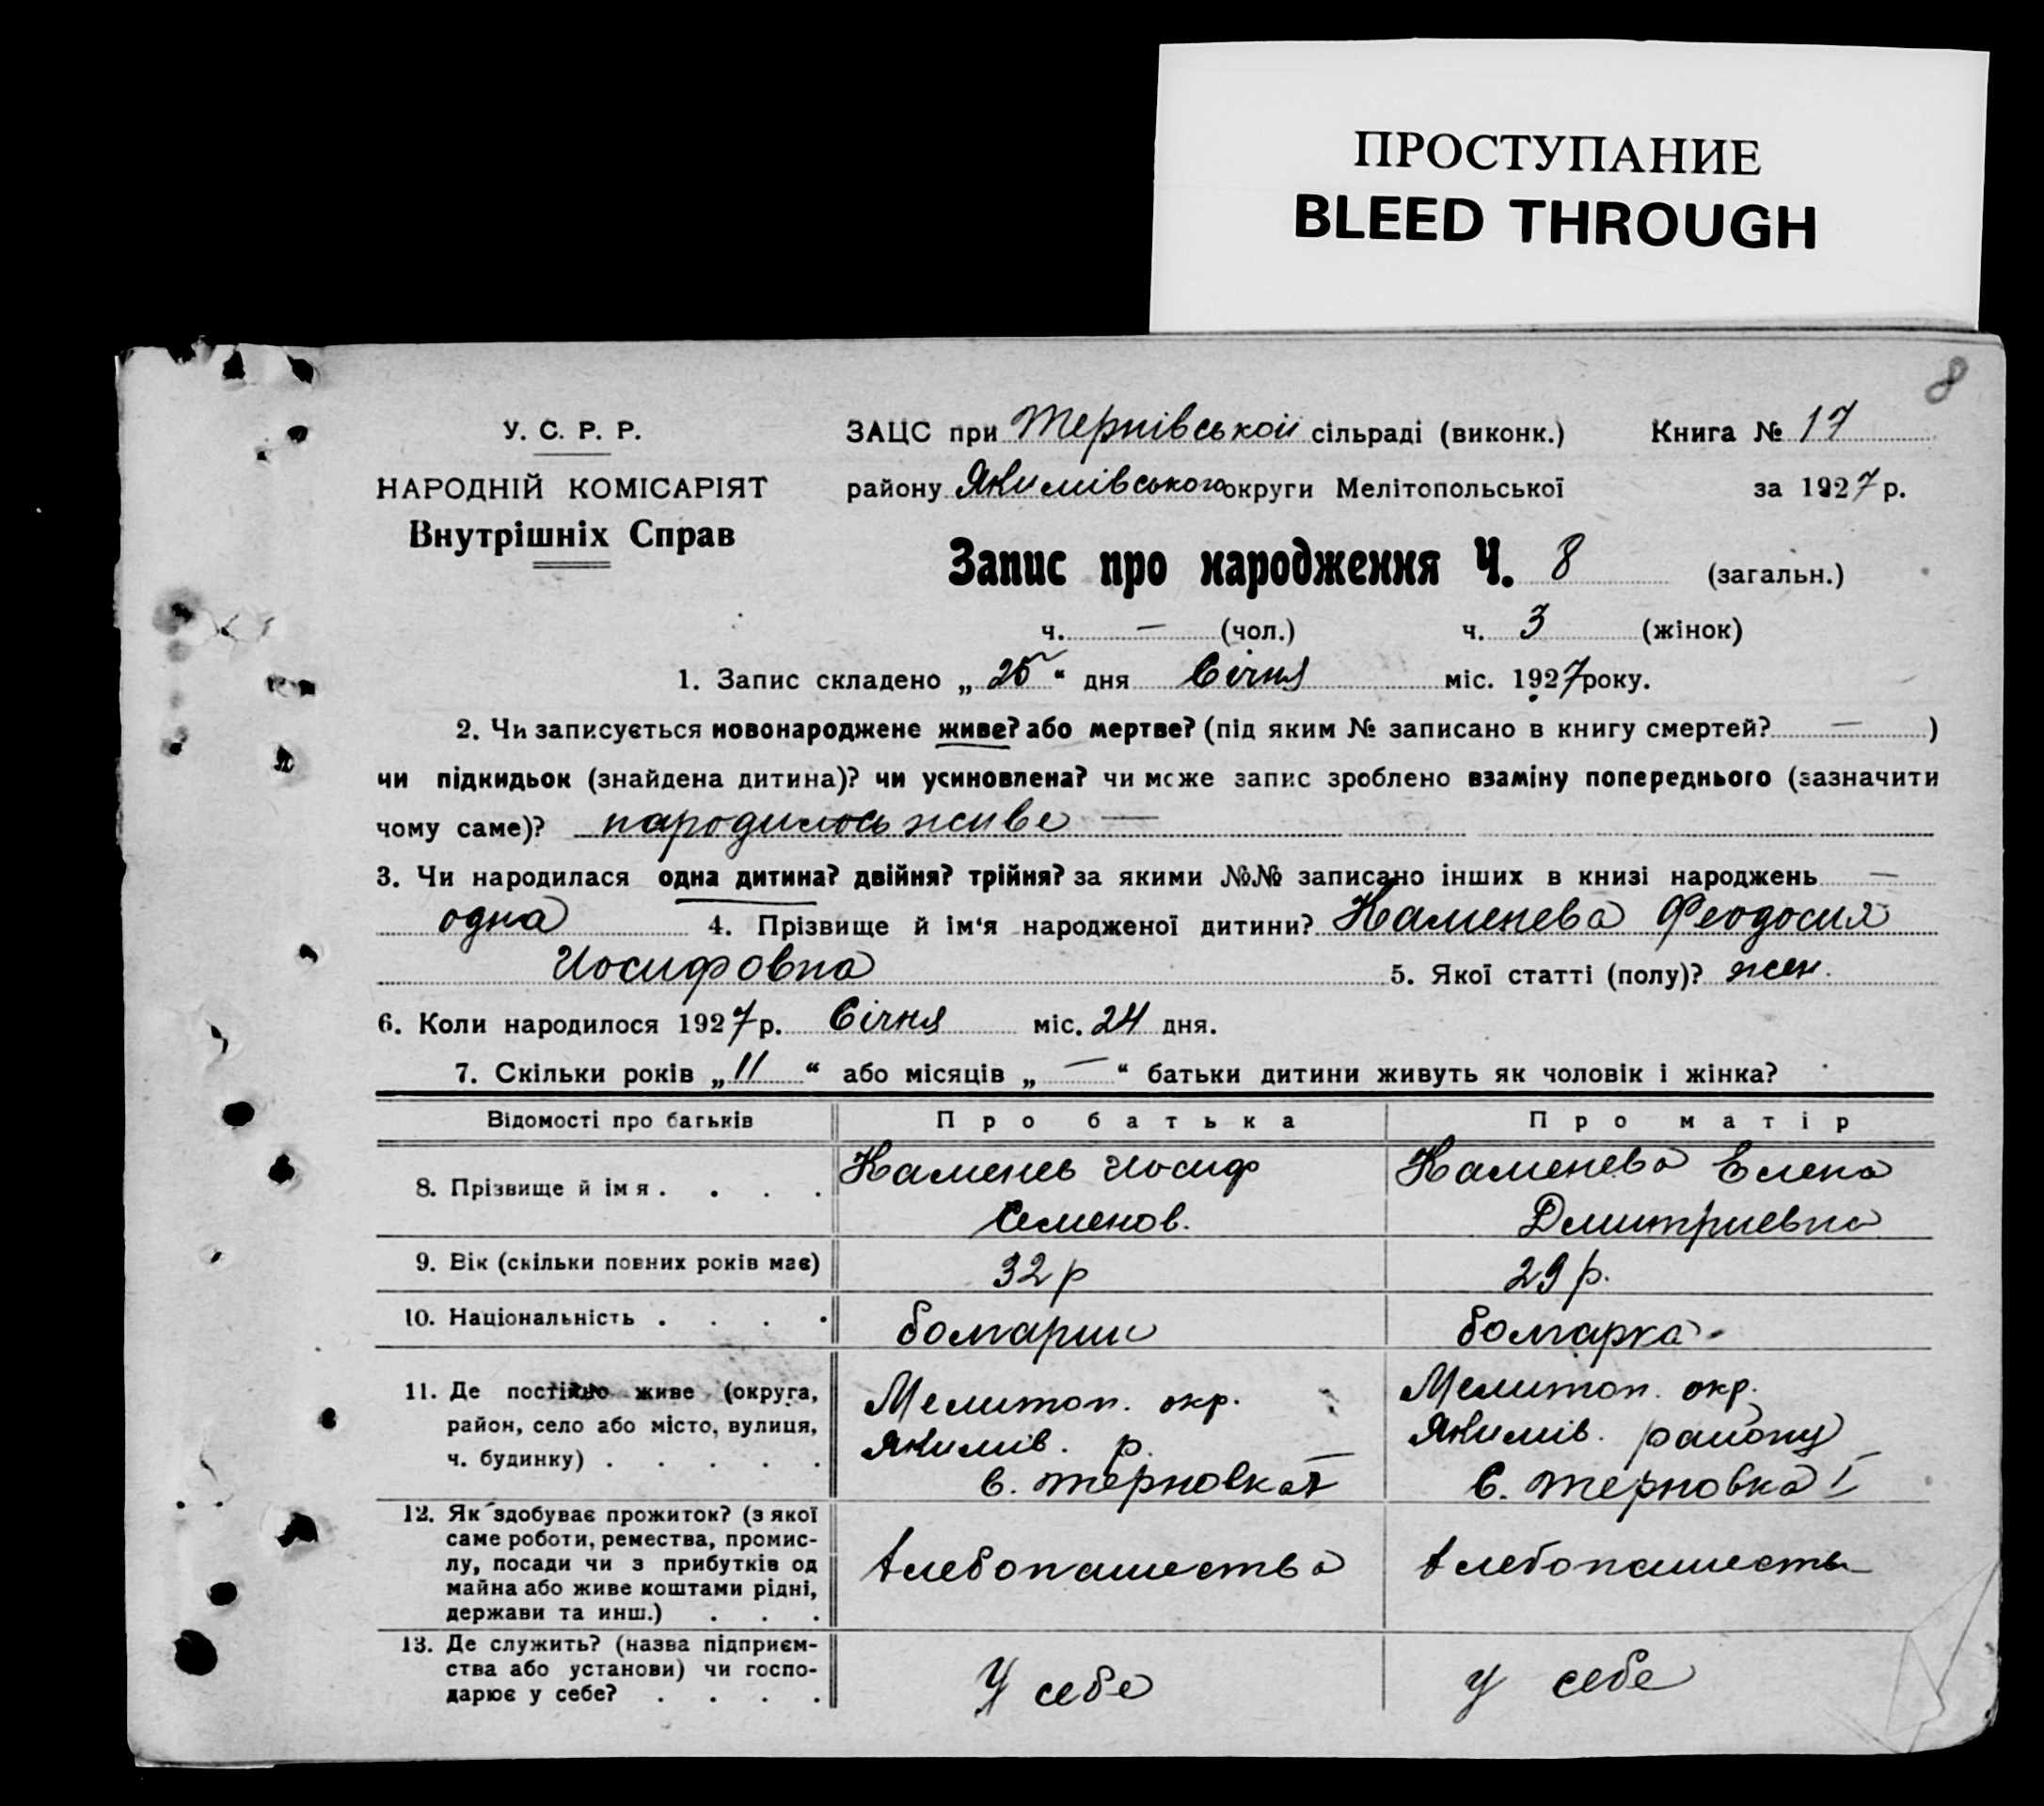 ПРОСТУПАНИЕ
BLEED THROUGH
8
У. С. Р. Р.
НАРОДНІЙ КОМІСАРІЯТ
Внутрішніх Справ
ЗАЦС при Тернівськой сільраді (виконк.) Книга № 17
району Якимівського округи Мелітопольської за 1927 р.
Запис про народження Ч. 8 (загальн.)
ч. — (чол.) ч. 3 (жінок)
1. Запис складено „25“ дня Січня міс. 1927 року.
2. Чи записується новонароджене живе? або мертве? (під яким № записано в книгу смертей? — )
чи підкидьок (знайдена дитина)? чи усиновлена? чи може запис зроблено взаміну попереднього (зазначити
чому саме)? народилось живе —
3. Чи народилася одна дитина? двійня? трійня? за якими №№ записано інших в книзі народжень —
одна 4. Прізвище й ім‘я народженої дитини? Каменева Феодосия
Иосифовна 5. Якої статті (полу)? жен.
6. Коли народилося 1927 р. Січня міс. 24 дня.
7. Скільки років „11“ або місяців „—“ батьки дитини живуть як чоловік і жінка?
Відомості про батьків Про батька Про матір
8. Прізвище й імя . . . . Каменев Иосиф Семенов. Каменева Елена Дмитриевна
9. Вік (скільки повних років має) 32 р 29 р.
10. Національність . . . . болгарин болгарка
11. Де постійно живе (округа, район, село або місто, вулиця, ч. будинку) . . . . . Мелитоп. окр. Якимів. р. с. Терновка I Мелитоп. окр. Якимів. району с. Терновка I
12. Як здобуває прожиток? (з якої саме роботи, ремества, промислу, посади чи з прибутків од майна або живе коштами рідні, держави та инш.) . . . Хлебопашества Хлебопашеств
13. Де служить? (назва підприємства або установи) чи господарює у себе? . . . . У себе у себе